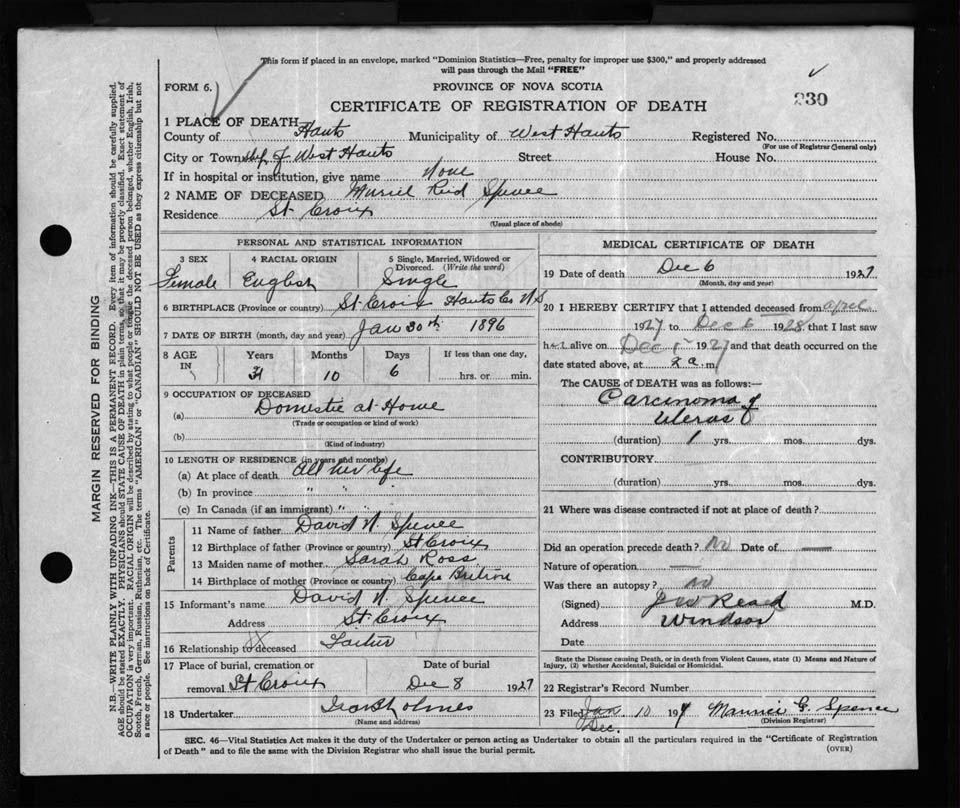 This form if placed in an envelope, marked "Dominion Statistics—Free, penalty for improper use $300," and properly addressed
will pass through the Mail "FREE"
FORM 6.
PROVINCE OF NOVA SCOTIA
230
CERTIFICATE OF REGISTRATION OF DEATH
1 PLACE OF DEATH
County of Hants Municipality of West Hants Registered No.
(For use of Registrar General only)
City or Town of West Hants Street House No.
If in hospital or institution, give name None
2 NAME OF DECEASED Muriel Reid Spence
Residence St Croix
(Usual place of abode)
PERSONAL AND STATISTICAL INFORMATION
3 SEX 4 RACIAL ORIGIN 5 Single, Married, Widowed or
Divorced. (Write the word)
Female English Single
6 BIRTHPLACE (Province or country) St Croix Hants Co NS
7 DATE OF BIRTH (month, day and year) Jan 30th 1896
8 AGE IN Years Months Days If less than one day,
31 10 6 hrs. or min.
9 OCCUPATION OF DECEASED
(a) Domestic at Home
(Trade or occupation or kind of work)
(b)
(Kind of industry)
10 LENGTH OF RESIDENCE (in years and months)
(a) At place of death All her life
(b) In province " " "
(c) In Canada (if an immigrant) " "
Parents
11 Name of father David N. Spence
12 Birthplace of father (Province or country) St Croix
13 Maiden name of mother Sarah Ross
14 Birthplace of mother (Province or country) Cape Britine
15 Informant's name David N. Spence
Address St Croix
16 Relationship to deceased Father
17 Place of burial, cremation or Date of burial
removal St Croix Dec 8 1927
18 Undertaker Holmes
(Name and address)
MEDICAL CERTIFICATE OF DEATH
19 Date of death Dec 6 1927
(Month, day and year)
20 I HEREBY CERTIFY that I attended deceased from April
1927 to Dec 6 1928 that I last saw
her alive on Dec 1927 and that death occurred on the
date stated above, at 2 a. m.
The CAUSE OF DEATH was as follows:—
Carcinoma of
Uterus
(duration) 1 yrs. mos. dys.
CONTRIBUTORY
(duration) yrs. mos. dys.
21 Where was disease contracted if not at place of death?
Did an operation precede death? No Date of —
Nature of operation —
Was there an autopsy? No
(Signed) J W Reid M.D.
Address Windsor
Date
State the Disease causing Death, or in death from Violent Causes, state (1) Means and Nature of
Injury, (2) whether Accidental, Suicidal or Homicidal.
22 Registrar's Record Number
23 Filed Jan. 10 19 Maurice G. Spence
Dec. (Division Registrar)
SEC. 46—Vital Statistics Act makes it the duty of the Undertaker or person acting as Undertaker to obtain all the particulars required in the "Certificate of Registration
of Death" and to file the same with the Division Registrar who shall issue the burial permit.
(OVER)
MARGIN RESERVED FOR BINDING
N.B.—WRITE PLAINLY WITH UNFADING INK—THIS IS A PERMANENT RECORD. Every item of information should be carefully supplied.
AGE should be stated EXACTLY. PHYSICIANS should STATE CAUSE OF DEATH in plain terms, so that it may be properly classified. Exact statement of
OCCUPATION is very important. RACIAL ORIGIN will be described by stating to what people or tongue the deceased person belonged, whether English, Irish,
Scotch, French, German, Russian, Ruthenian, etc. The terms "AMERICAN" or "CANADIAN" SHOULD NOT BE USED as they express citizenship but not
a race or people. See instructions on back of Certificate.